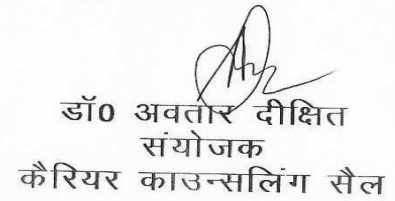 डॉ0 अवतार दीक्षित
संयोजक
कैरियर काउन्सलिंग सैल